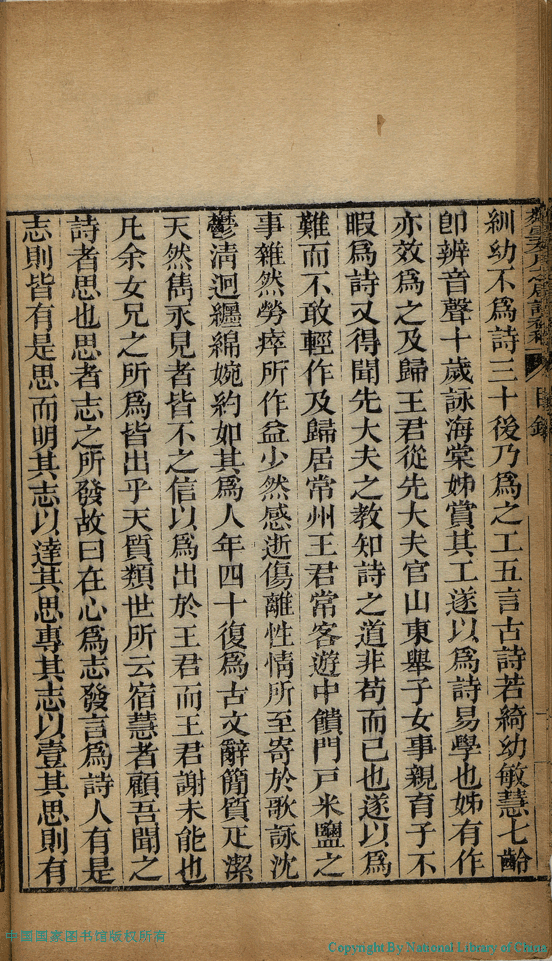 紃幼不爲詩三十後乃爲之工五言古詩若綺幼敏慧七齡
卽辨音聲十歲詠海棠姊賞其工遂以爲詩易學也姊有作
亦效爲之及歸王君從先大夫官山東舉子女事親育子不
暇爲詩又得聞先大夫之教知詩之道非苟而已也遂以爲
難而不敢輕作及歸居常州王君常客遊中饋門戸米鹽之
事雜然勞瘁所作益少然感逝傷離性情所至寄於歌詠沈
鬱淸迥纏綿婉約如其爲人年四十復爲古文辭簡質疋潔
天然雋永見者皆不之信以爲出於王君而王君謝未能也
凡余女兄之所爲皆出乎天質類世所云宿慧者顧吾聞之
詩者思也思者志之所發故曰在心爲志發言爲詩人有是
志則皆有是思而明其志以達其思專其志以壹其思則有
目錄
中国国家图书馆版权所有
Copyright By National Library of China